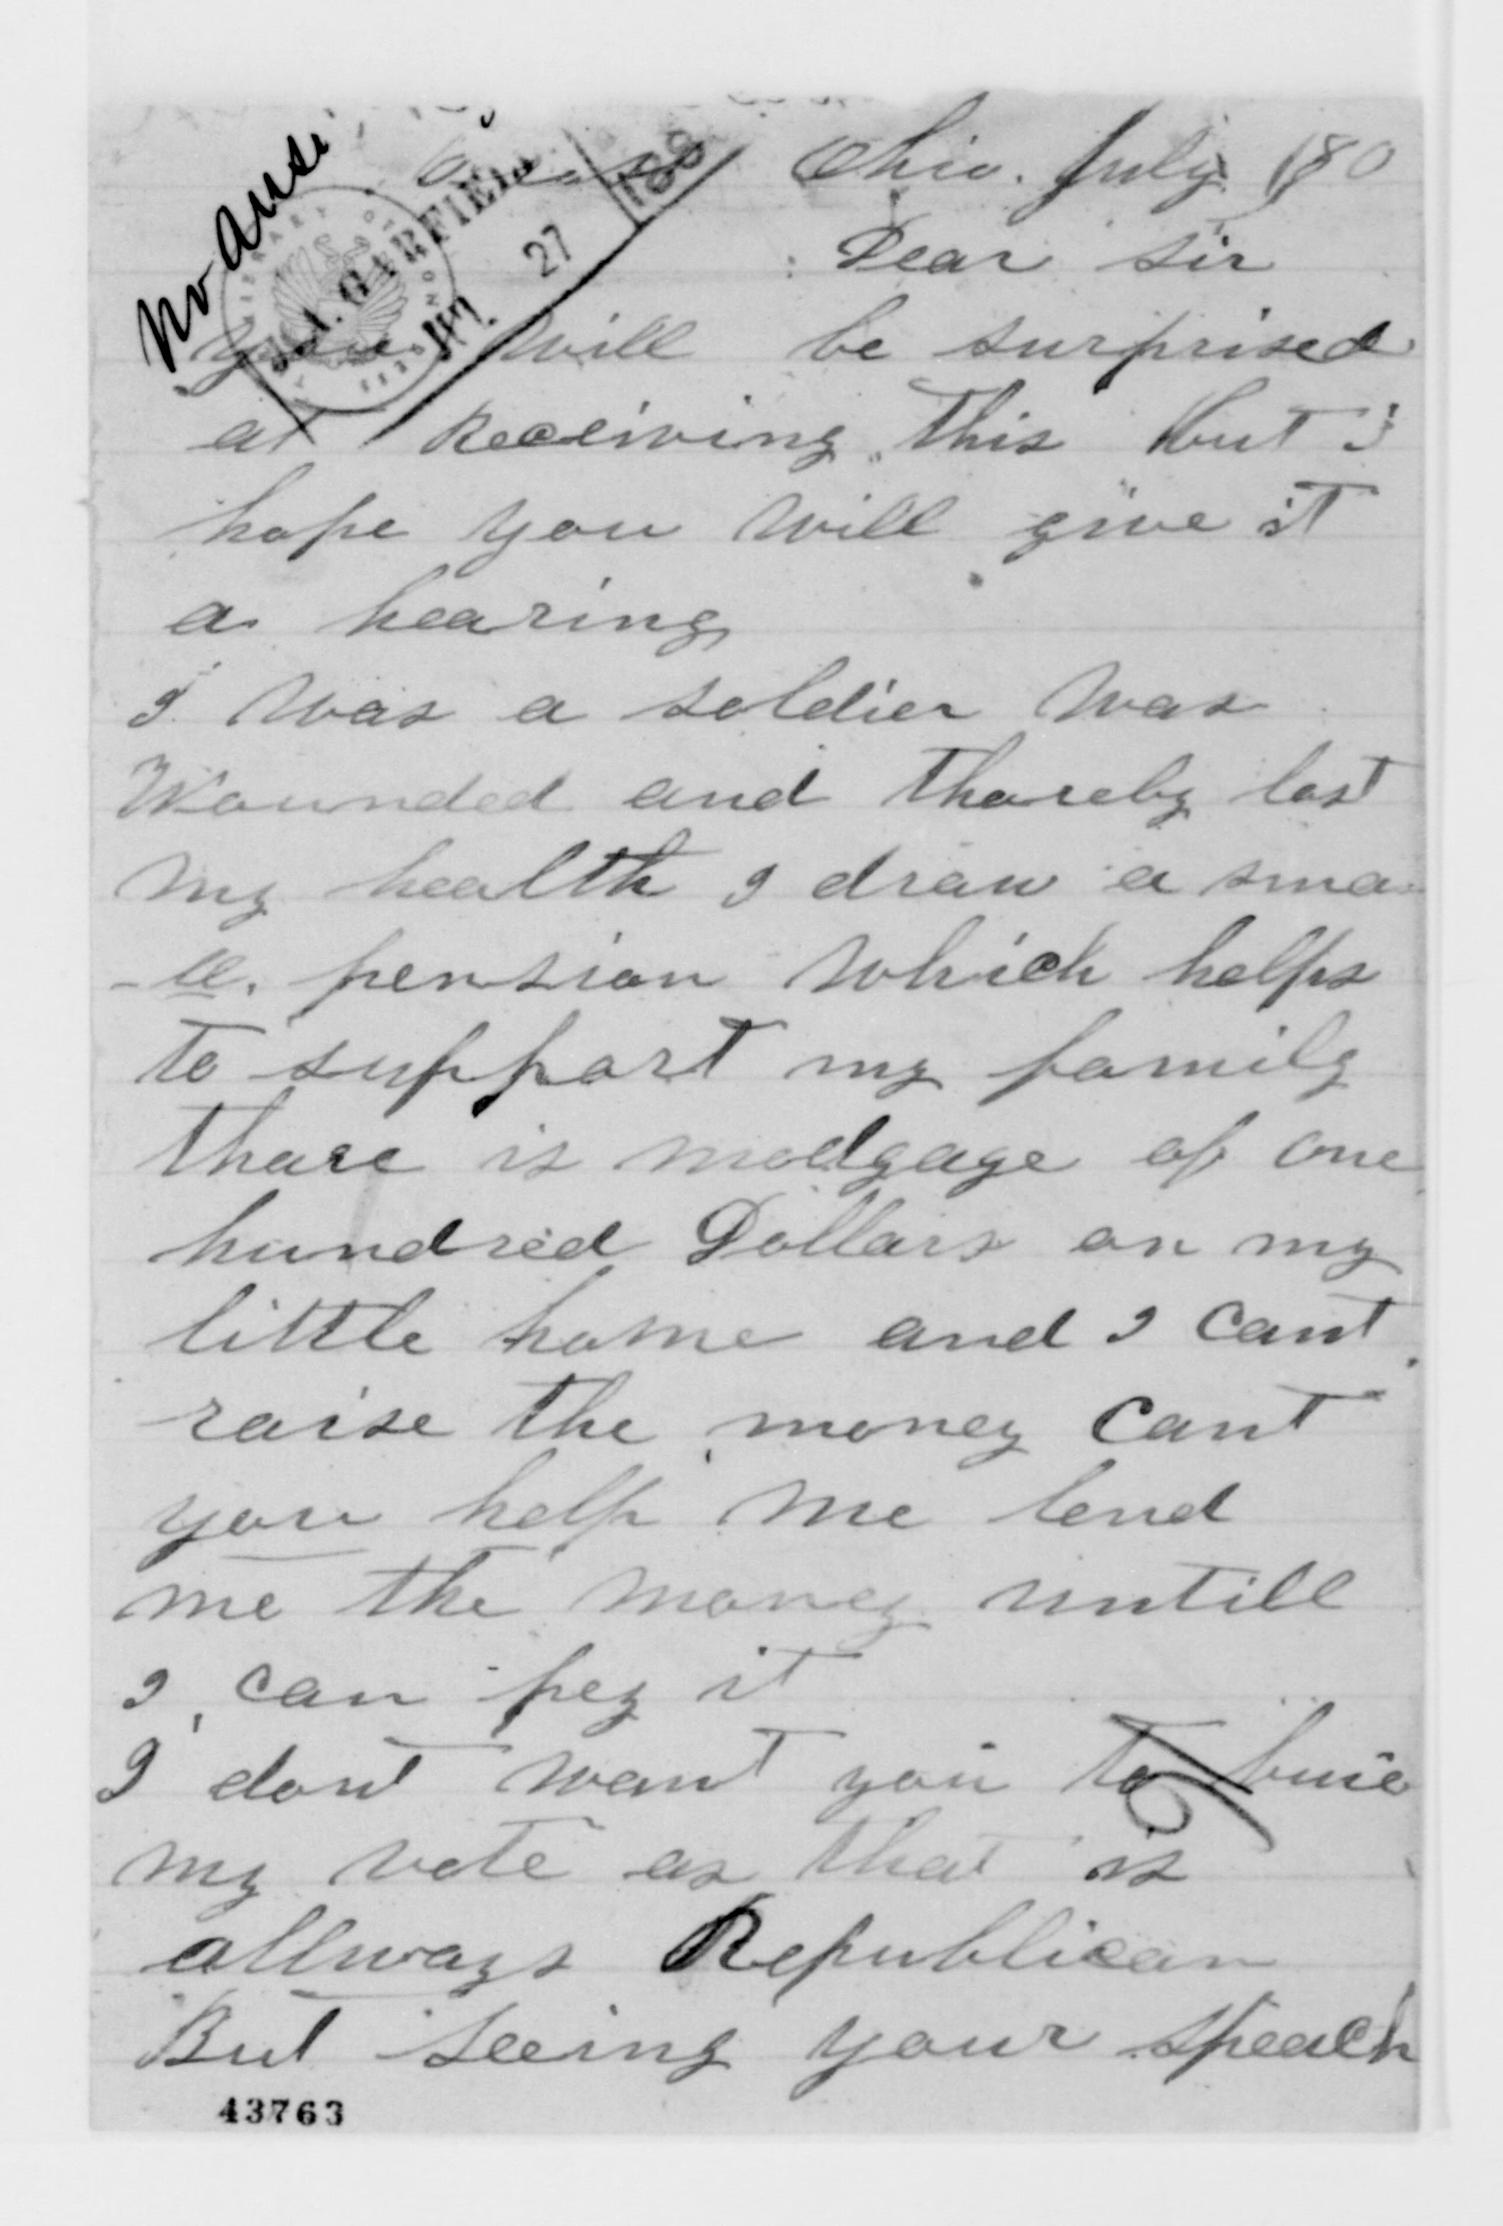 No ans
Ohio. July 180
JUL 27 188
Dear sir
you will be surprised
at Receiving this but i
hope you will give it
a hearing
I was a soldier was
Wounded and thareby lost
my health I draw a sma
-ll. pension which helps
to support my family
thare is modgage of one
hundred Dollars on my
little home and I cant
raise the money cant
you help me lend
me the money untill
I can pey it
I dont want you to buie
my vote as that is
allways Republican
But seeing your speach
43763